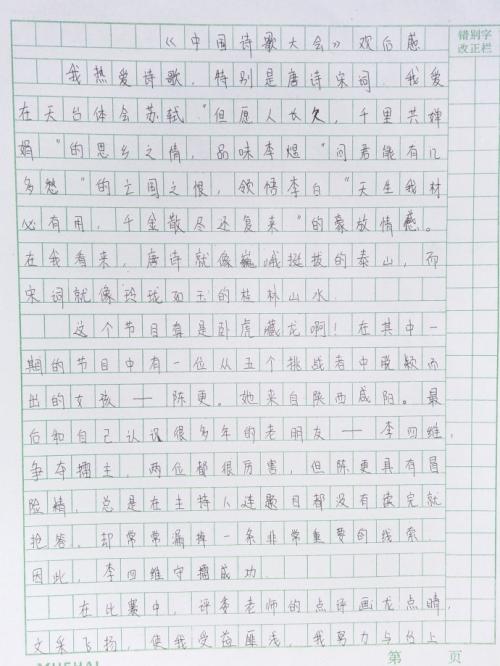 《中国诗歌大会》观后感
我热爱诗歌，特别是唐诗宋词。我爱
在天台体会苏轼“但愿人长久，千里共婵
娟”的思乡之情，品味李煜“问君能有几
多愁”的亡国之恨，领悟李白“天生我材
必有用，千金散尽还复来”的豪放情感。
在我看来，唐诗就像巍峨挺拔的泰山，而
宋词就像玲珑如玉的桂林山水。
这个节目真是卧虎藏龙啊！在其中一
期的节目中有一位从五个挑战者中脱颖而
出的女孩——陈更。她来自陕西咸阳。最
后和自己认识很多年的老朋友——李四维，
争夺擂主，两位都很厉害，但陈更具有冒
险精，总是在主持人连题目都没有读完就
抢答，却常常漏掉一条非常重要的线索，
因此，李四维守擂成功。
在比赛中，评委老师的点评画龙点睛，
文采飞扬，使我受益匪浅，我努力与台上
错别字
改正栏
第 页